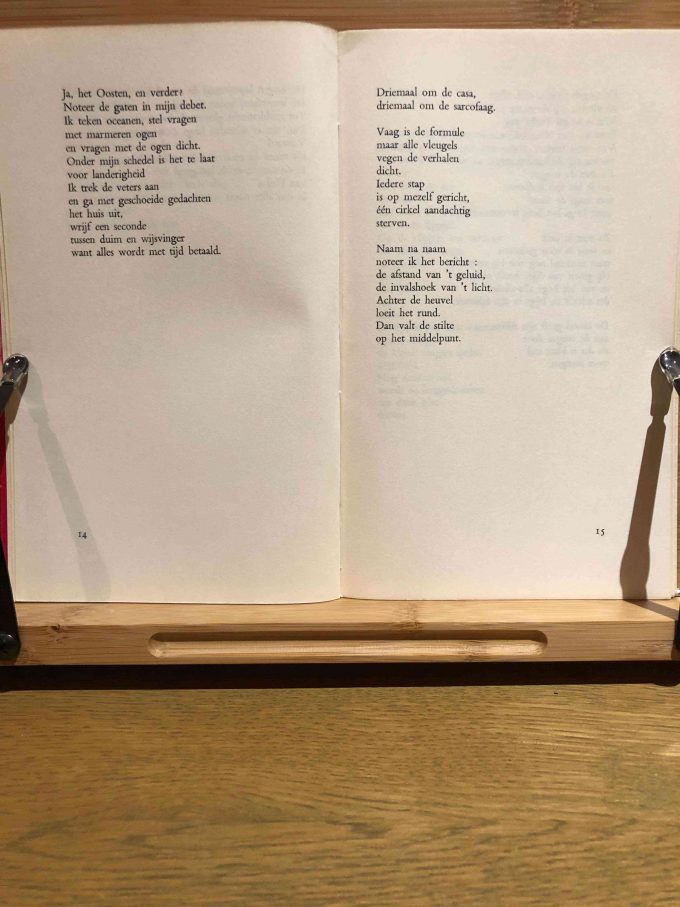 Ja, het Oosten, en verder?
Noteer de gaten in mijn debet.
Ik teken oceanen, stel vragen
met marmeren ogen
en vragen met de ogen dicht.
Onder mijn schedel is het te laat
voor landerigheid
Ik trek de veters aan
en ga met geschoeide gedachten
het huis uit,
wrijf een seconde
tussen duim en wijsvinger
want alles wordt met tijd betaald.
14
Driemaal om de casa,
driemaal om de sarcofaag.
Vaag is de formule
maar alle vleugels
vegen de verhalen
dicht.
Iedere stap
is op mezelf gericht,
één cirkel aandachtig
sterven.
Naam na naam
noteer ik het bericht :
de afstand van 't geluid,
de invalshoek van 't licht.
Achter de heuvel
loeit het rund.
Dan valt de stilte
op het middelpunt.
15